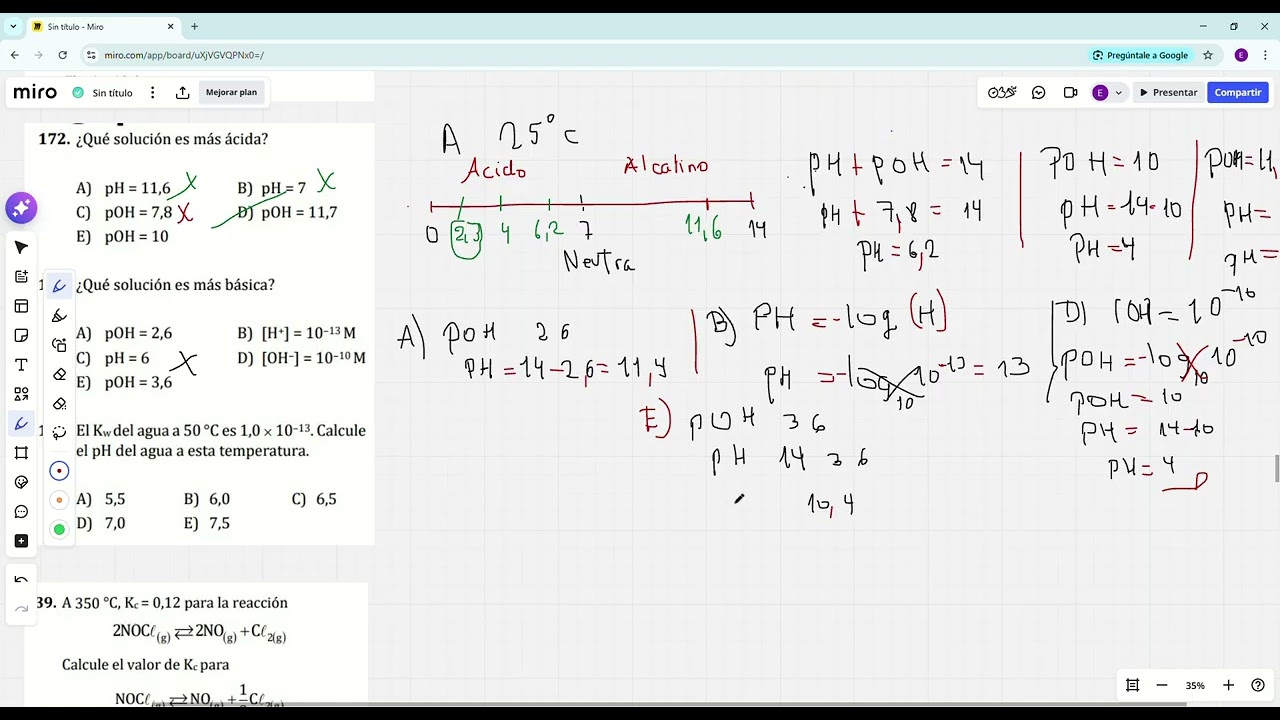 Sin título - Miro
miro.com/app/board/uXjVGVQPNx0=/
Pregúntale a Google
E
miro
Sin título
Mejorar plan
E
Presentar
Compartir
172. ¿Qué solución es más ácida?
A) pH = 11,6 X
B) pH = 7 X
C) pOH = 7,8 X
D) pOH = 11,7
E) pOH = 10
¿Qué solución es más básica?
A) pOH = 2,6
B) [H⁺] = 10⁻¹³ M
C) pH = 6 X
D) [OH⁻] = 10⁻¹⁰ M
E) pOH = 3,6
El Kw del agua a 50 °C es 1,0 × 10⁻¹³. Calcule
el pH del agua a esta temperatura.
A) 5,5
B) 6,0
C) 6,5
D) 7,0
E) 7,5
39. A 350 °C, Kc = 0,12 para la reacción
2NOCℓ(g) ⇄ 2NO(g) + Cℓ2(g)
Calcule el valor de Kc para
NOCℓ(g) ⇄ NO(g) + 1/2 Cℓ2(g)
A 25° C
Acido Alcalino
0 2,3 4 6,2 7 11,6 14
Neutra
pH + pOH = 14
pH + 7,8 = 14
pH = 6,2
POH = 10
pH = 14-10
PH = 4
POH = 11,
pH =
pH =
A) POH 2 6
PH = 14 - 2,6 = 11,4
B) PH = -log [H]
PH = -log10 10⁻¹³ = 13
D) [OH = 10⁻¹⁰
POH = -log10 10⁻¹⁰
POH = 10
PH = 14-10
PH = 4
E) POH 3 6
PH 14 3 6
10,4
35%